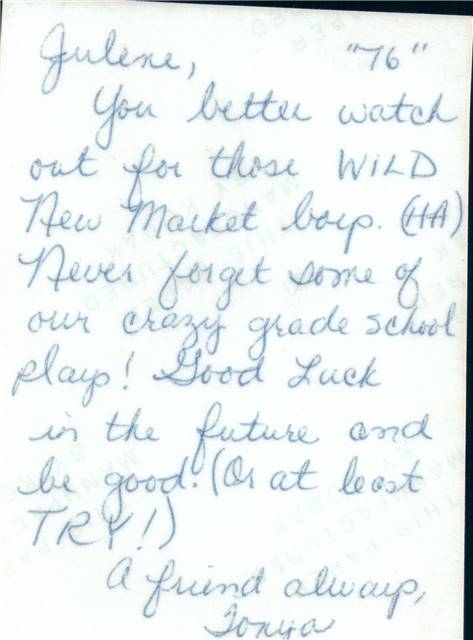 Julene, "76"
You better watch
out for those WILD
New Market boys. (HA)
Never forget some of
our crazy grade school
plays! Good Luck
in the future and
be good. (Or at least
TRY!)
A friend always,
Tonya